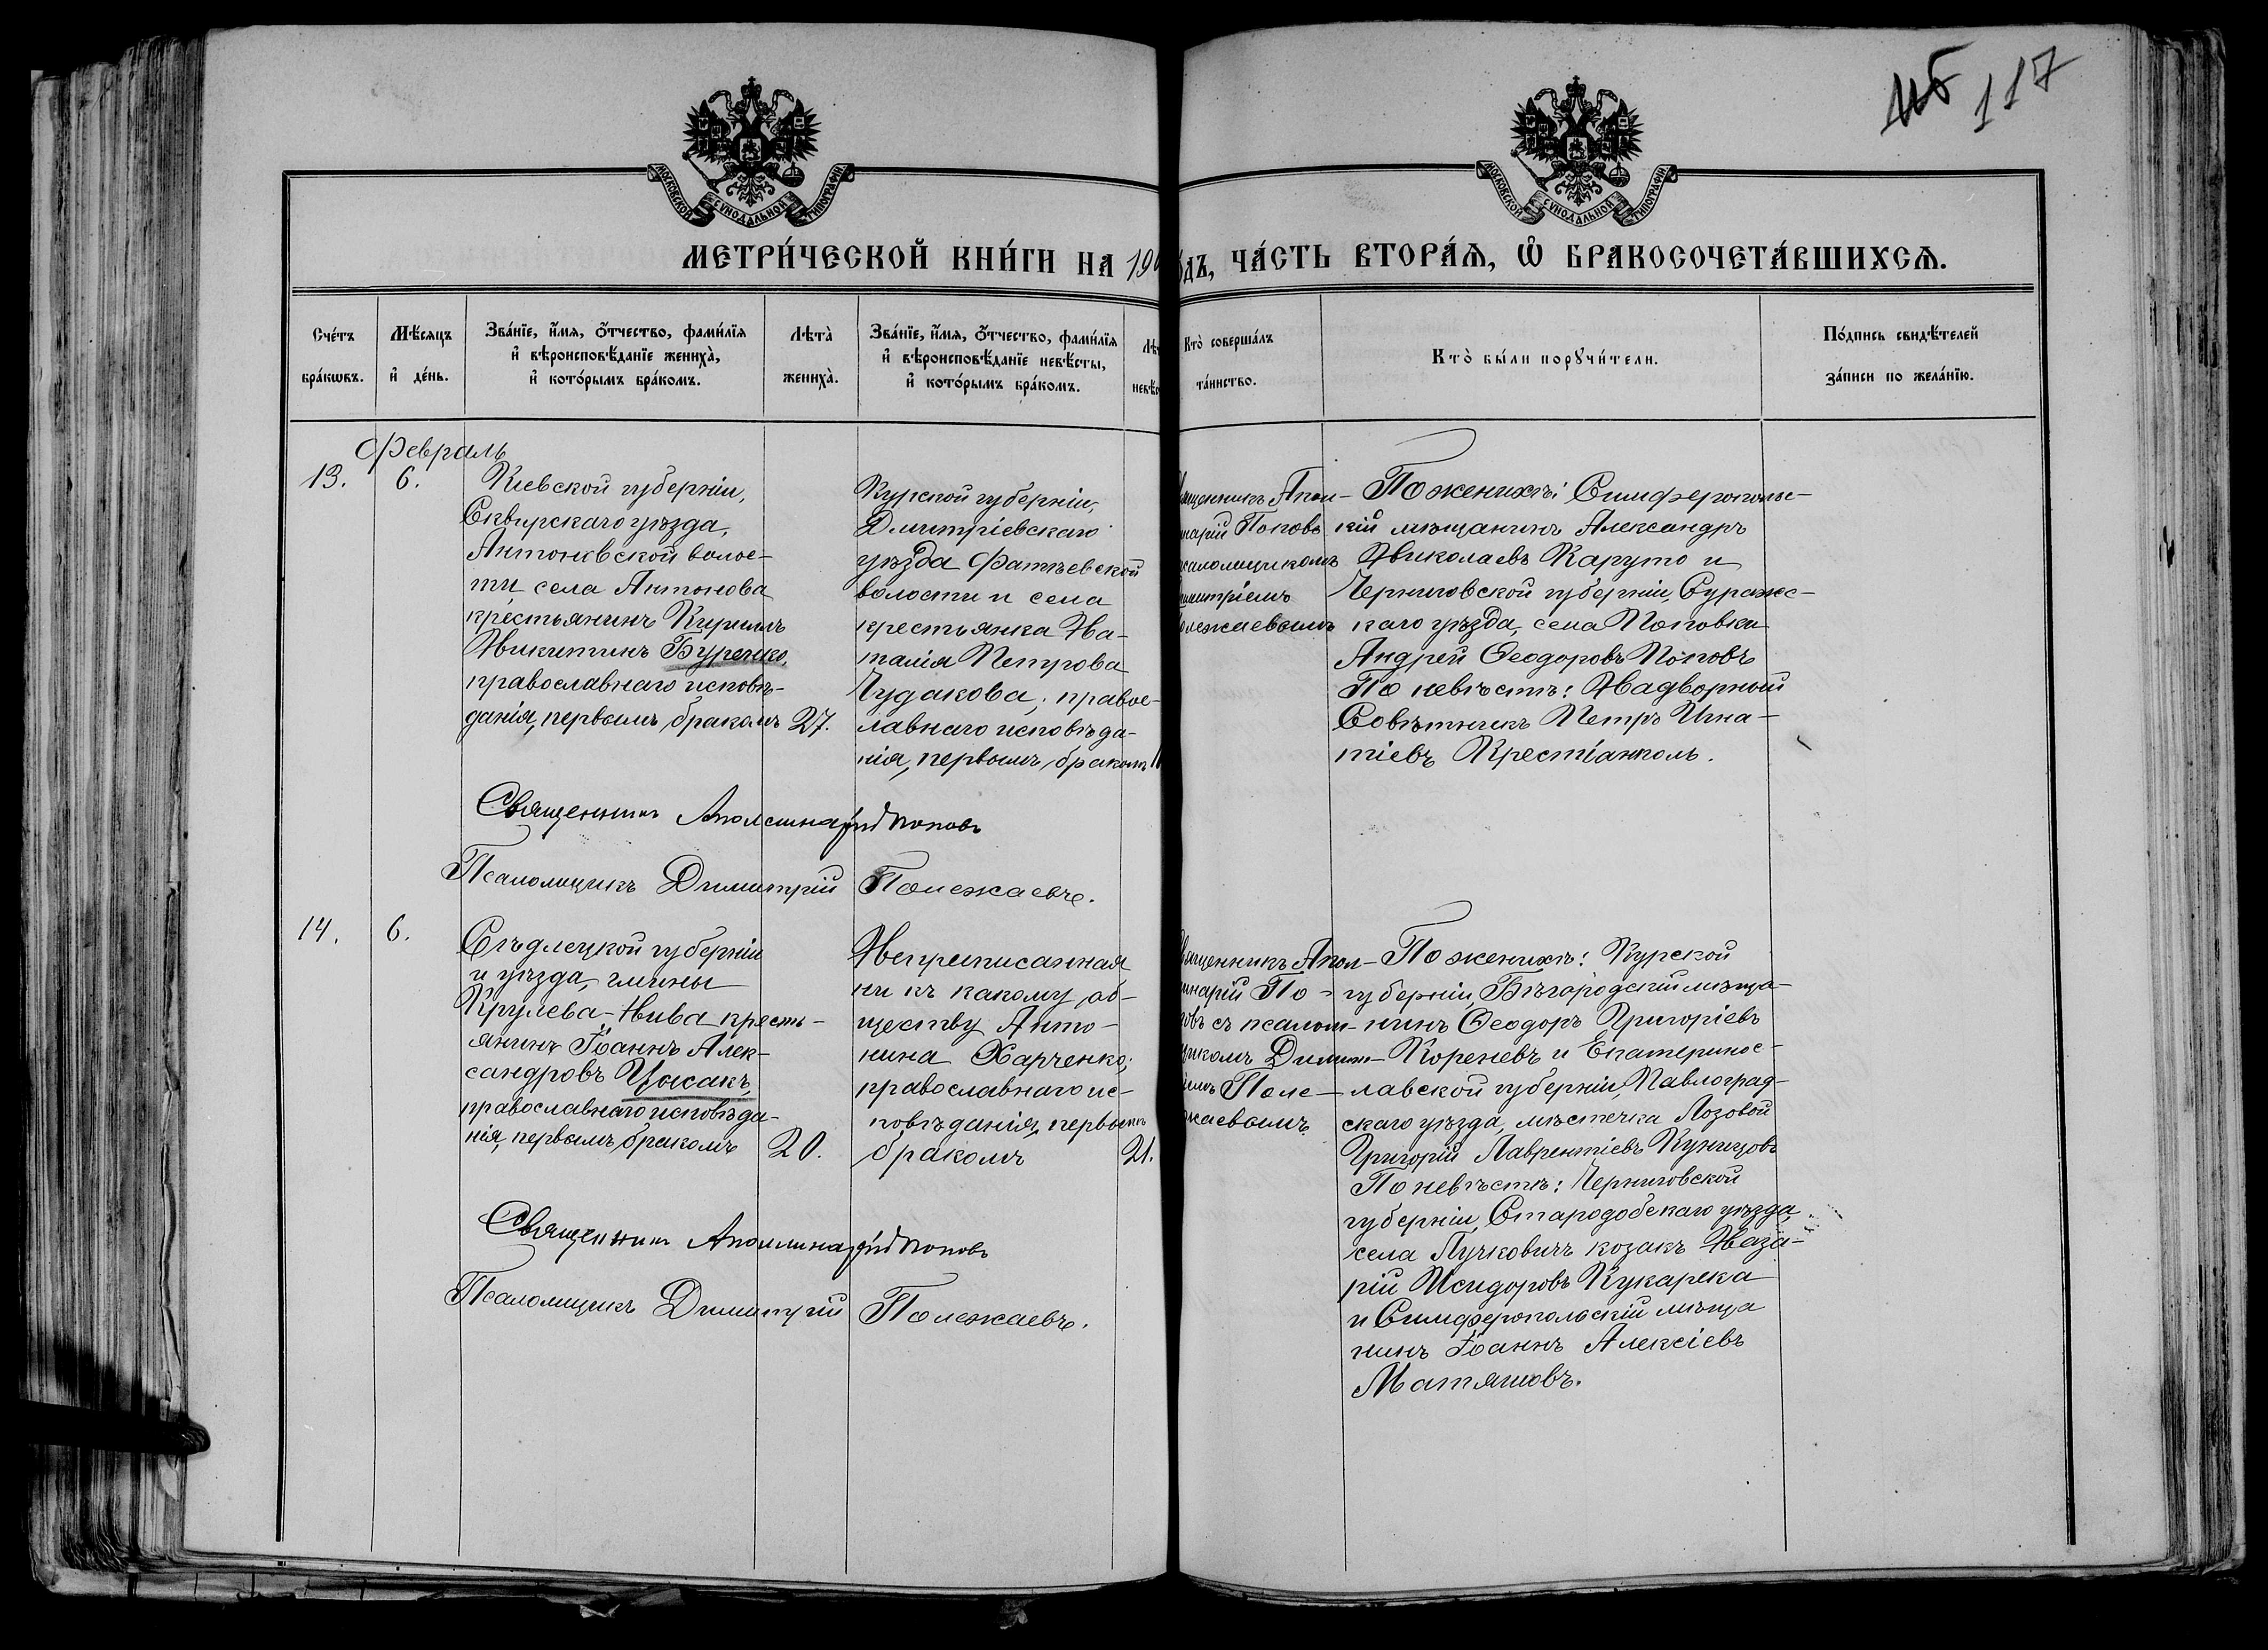 117
МОСКОВСКОЙ СѴНОДАЛЬНОЙ ТИПОГРАФІИ
МОСКОВСКОЙ СѴНОДАЛЬНОЙ ТИПОГРАФІИ
МЕТРИ́ЧЕСКОЙ КНИ́ГИ НА 190
ЧА́СТЬ ВТОРА́Ѧ, Ѿ БРАКОСОЧЕТА́ВШИХСѦ.
Сче́тъ
бра́кѡвъ.
Мѣ́сяцъ
и҆ де́нь.
Зва́нїе, и҆́мя, ѻ҆́тчество, фами́лїя
и҆ вѣроисповѣ́данїе жениха̀,
и҆ кото́рымъ бра́комъ.
Лѣта̀
жениха̀.
Зва́нїе, и҆́мя, ѻ҆́тчество, фами́лїя
и҆ вѣроисповѣ́данїе невѣ́сты,
и҆ кото́рымъ бра́комъ.
Кто̀ соверша́лъ
та́инство.
Кто̀ бы́ли порꙋчи́тели.
По́дпись свидѣ́телей
за́писи по жела́нїю.
Февраль
13.
6.
Кіевской губерніи,
Сквирскаго уѣзда,
Антоновской волос-
ти села Антонова
крестьянинъ Кириллъ
Никитинъ Буренко,
православнаго исповѣ-
данія, первымъ бракомъ
27.
Курской губерніи,
Дмитріевскаго
уѣзда Фатѣевской
волости и села
крестьянка На-
талія Петрова
Чудакова, правос-
лавнаго исповѣда-
нія, первымъ бракомъ
Апол-
Поповъ
По женихѣ: Симферополь-
кій мѣщанинъ Александръ
Николаевъ Каруто и
Черниговской губерніи, Суражс-
каго уѣзда, села Поповки
Андрей Ѳеодоровъ Поповъ
По невѣстѣ: Надворный
Совѣтникъ Петръ Игна-
тіевъ
Священникъ Аполлинарій Поповъ
Псаломщикъ Димитрій Полежаевъ.
14.
6.
Сѣдлецкой губерніи
и уѣзда, гмины
Крулева-Нива кресть-
янинъ Іоаннъ Алек-
сандровъ Цысакъ,
православнаго исповѣда-
нія, первымъ бракомъ
20.
Неприписанная
ни къ какому об-
ществу Анто-
нина Харченко,
православнаго ис-
повѣданія, первымъ
бракомъ
21.
Апол-
По-
съ псалом-
Поле-
По женихѣ: Курской
губерніи, Бѣгородскій мѣща-
нинъ Ѳеодоръ Григоріевъ
Кореневъ и Екатеринос-
лавской губерніи, Павлоград-
скаго уѣзда, мѣстечка Лозовой
Григорій Лаврентіевъ Куницовъ
По невѣстѣ: Черниговской
губерніи, Стародобскаго уѣзда,
села Лучковичъ козакъ Наза-
рій Исидоровъ Кукарека
и Симферопольскій мѣща
нинъ Іоаннъ Алексіевъ
Матяшовъ.
Священникъ Аполлинарій Поповъ
Псаломщикъ Димитрій Полежаевъ.